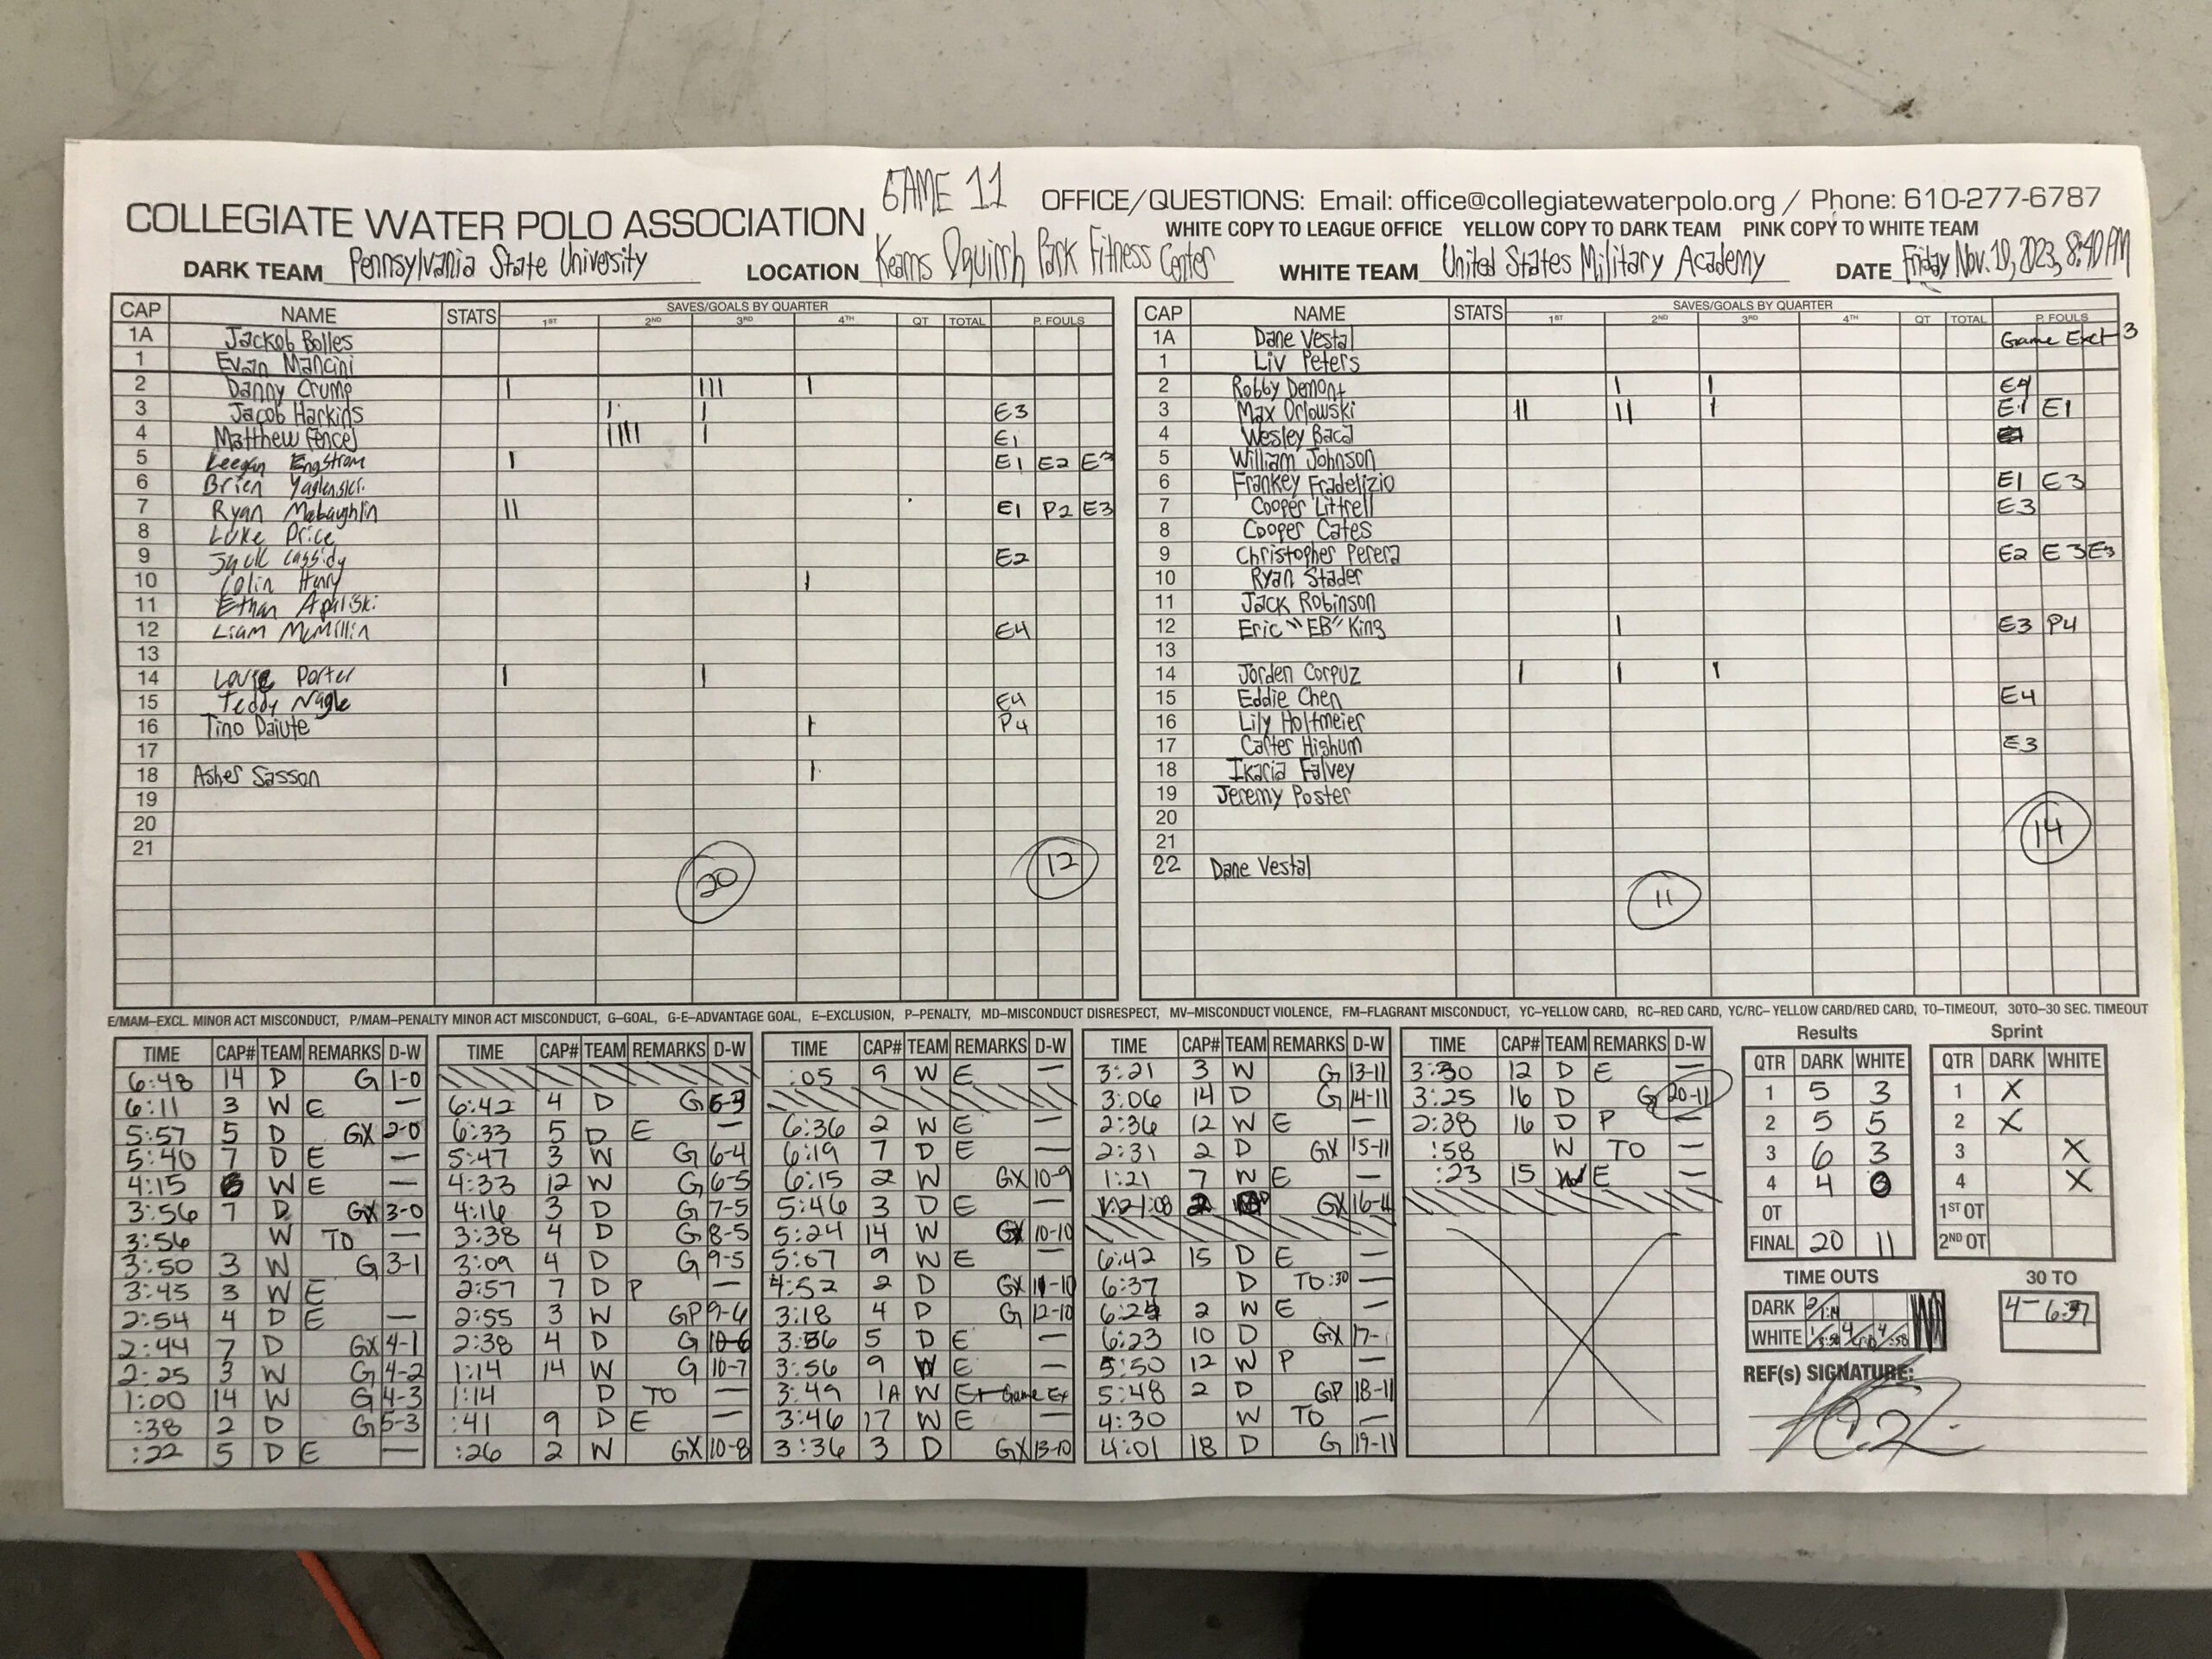 GAME 11
OFFICE/QUESTIONS: Email: office@collegiatewaterpolo.org / Phone: 610-277-6787
COLLEGIATE WATER POLO ASSOCIATION
WHITE COPY TO LEAGUE OFFICE YELLOW COPY TO DARK TEAM PINK COPY TO WHITE TEAM
DARK TEAM Pennsylvania State University LOCATION Kearns Oquirrh Park Fitness Center WHITE TEAM United States Military Academy DATE Friday Nov. 10, 2023, 8:40 AM
CAP NAME STATS SAVES/GOALS BY QUARTER 1ST 2ND 3RD 4TH OT TOTAL P. FOULS
1A Jackob Bolles
1 Evan Mancini
2 Danny Crump I III I
3 Jacob Harkins I I E3
4 Matthew Fencel IIII I E1
5 Keegan Engstrom I E1 E2 E3
6 Brien
7 Ryan II E1 P2 E3
8 Luke Price
9 Jack Cassidy E2
10 Colin I
11 Ethan
12 Liam McMillin E4
13
14 Porter I I
15 Teddy Nagle E4
16 Tino Daiute I P4
17
18 Asher Sasson I
19
20
21
20
12
CAP NAME STATS SAVES/GOALS BY QUARTER 1ST 2ND 3RD 4TH OT TOTAL P. FOULS
1A Dane Vestal Game Exct 3
1 Liv Peters
2 Robby Demont I I E4
3 Max Orlowski II II I E1 E1
4 Wesley Baca
5 William Johnson
6 Frankey Fradelizio E1 E3
7 Cooper Littrell E3
8 Cooper Cates
9 Christopher Perera E2 E3 E3
10 Ryan Stader
11 Jack Robinson
12 Eric "EB" King I E3 P4
13
14 Jorden Corpuz I I I
15 Eddie Chen E4
16 Lily Holtmeier
17 Carter Highum E3
18 Ikaria Falvey
19 Jeremy Poster
20
21
22 Dane Vestal
14
11
E/MAM–EXCL. MINOR ACT MISCONDUCT, P/MAM–PENALTY MINOR ACT MISCONDUCT, G–GOAL, G-E–ADVANTAGE GOAL, E–EXCLUSION, P–PENALTY, MD–MISCONDUCT DISRESPECT, MV–MISCONDUCT VIOLENCE, FM–FLAGRANT MISCONDUCT, YC–YELLOW CARD, RC–RED CARD, YC/RC– YELLOW CARD/RED CARD, TO–TIMEOUT, 30TO–30 SEC. TIMEOUT
TIME CAP# TEAM REMARKS D-W
6:48 14 D G 1-0
6:11 3 W E —
5:57 5 D GX 2-0
5:40 7 D E —
4:15 6 W E —
3:56 7 D GX 3-0
3:56 W TO —
3:50 3 W G 3-1
3:45 3 W E
2:54 4 D E —
2:44 7 D GX 4-1
2:25 3 W G 4-2
1:00 14 W G 4-3
:38 2 D G 5-3
:22 5 D E —
TIME CAP# TEAM REMARKS D-W
6:42 4 D G 6-3
6:33 5 D E —
5:47 3 W G 6-4
4:33 12 W G 6-5
4:16 3 D G 7-5
3:38 4 D G 8-5
3:09 4 D G 9-5
2:57 7 D P —
2:55 3 W GP 9-6
2:38 4 D G 10-6
1:14 14 W G 10-7
1:14 D TO —
:41 9 D E —
:26 2 W GX 10-8
TIME CAP# TEAM REMARKS D-W
:05 9 W E —
6:36 2 W E —
6:19 7 D E —
6:15 2 W GX 10-9
5:46 3 D E —
5:24 14 W GX 10-10
5:07 9 W E —
4:52 2 D GX 11-10
3:18 4 D G 12-10
3:56 5 D E —
3:56 9 W E —
3:49 1A W E+ Game Ex
3:46 17 W E —
3:36 3 D GX 13-10
TIME CAP# TEAM REMARKS D-W
3:21 3 W G 13-11
3:06 14 D G 14-11
2:36 12 W E —
2:31 2 D GX 15-11
1:21 7 W E —
1:08 2 GX 16-11
6:42 15 D E —
6:37 D TO :30 —
6:24 2 W E —
6:23 10 D GX 17-
5:50 12 W P —
5:48 2 D GP 18-11
4:30 W TO —
4:01 18 D G 19-11
TIME CAP# TEAM REMARKS D-W
3:30 12 D E —
3:25 16 D G 20-11
2:38 16 D P —
:58 W TO —
:23 15 W E —
Results
QTR DARK WHITE
1 5 3
2 5 5
3 6 3
4 4 0
OT
FINAL 20 11
Sprint
QTR DARK WHITE
1 X
2 X
3 X
4 X
1ST OT
2ND OT
TIME OUTS
DARK 2/1:14
WHITE 1/3:56 4/4:30 4/:58
30 TO
4 – 6:37
REF(s) SIGNATURE: